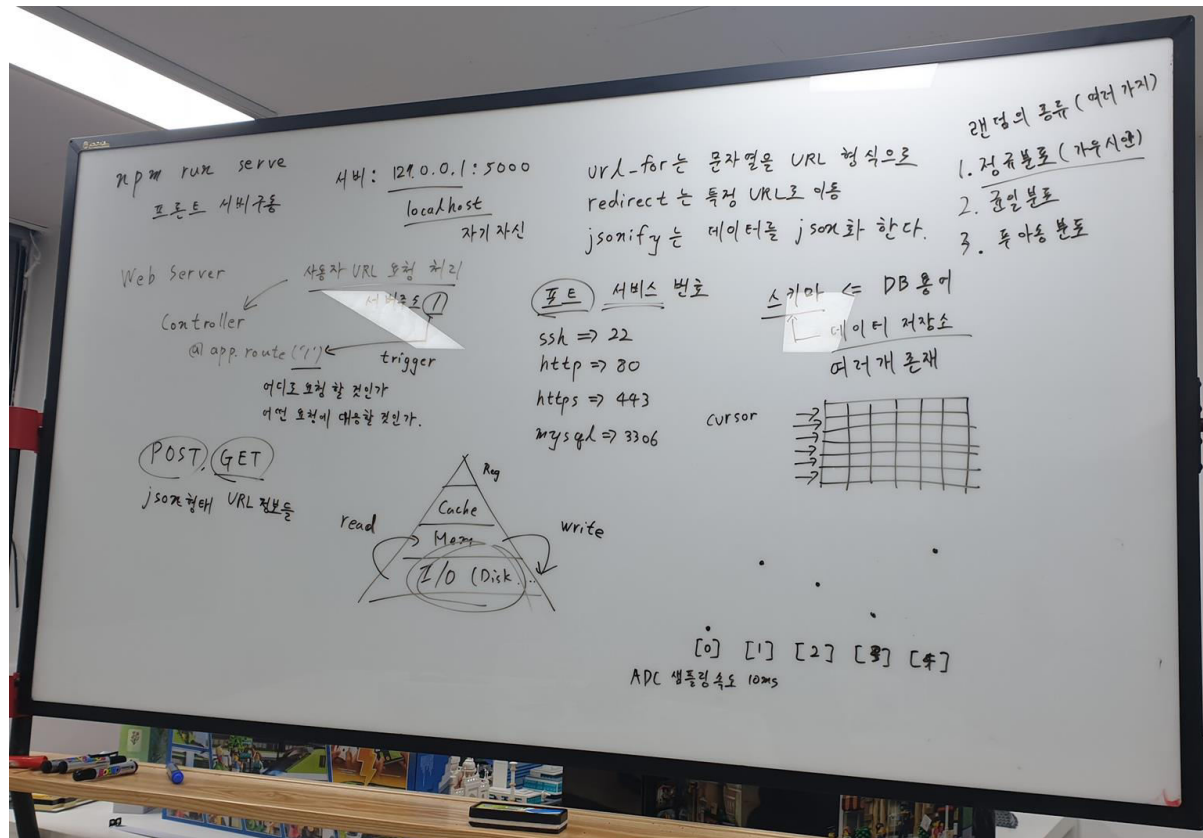 npm run serve
프론트 서버구동
서버: 127.0.0.1:5000
localhost
자기 자신
url_for는 문자열을 URL 형식으로
redirect는 특정 URL로 이동
jsonify는 데이터를 json화 한다.
랜덤의 종류 (여러 가지)
1. 정규분포 (가우시안)
2. 균일분포
3. 푸아송 분포
Web Server
사용자 URL 요청 처리
서버주소 /
Controller
@app.route('/')
trigger
어디로 요청 할 것인가
어떤 요청에 대응할 것인가.
포트 서비스 번호
ssh => 22
http => 80
https => 443
mysql => 3306
스키마 <= DB 용어
데이터 저장소
여러개 존재
cursor
POST, GET
json형태 URL 정보들
Reg
Cache
Mem
I/O (Disk...
read
write
[0] [1] [2] [3] [4]
ADC 샘플링속도 10ms